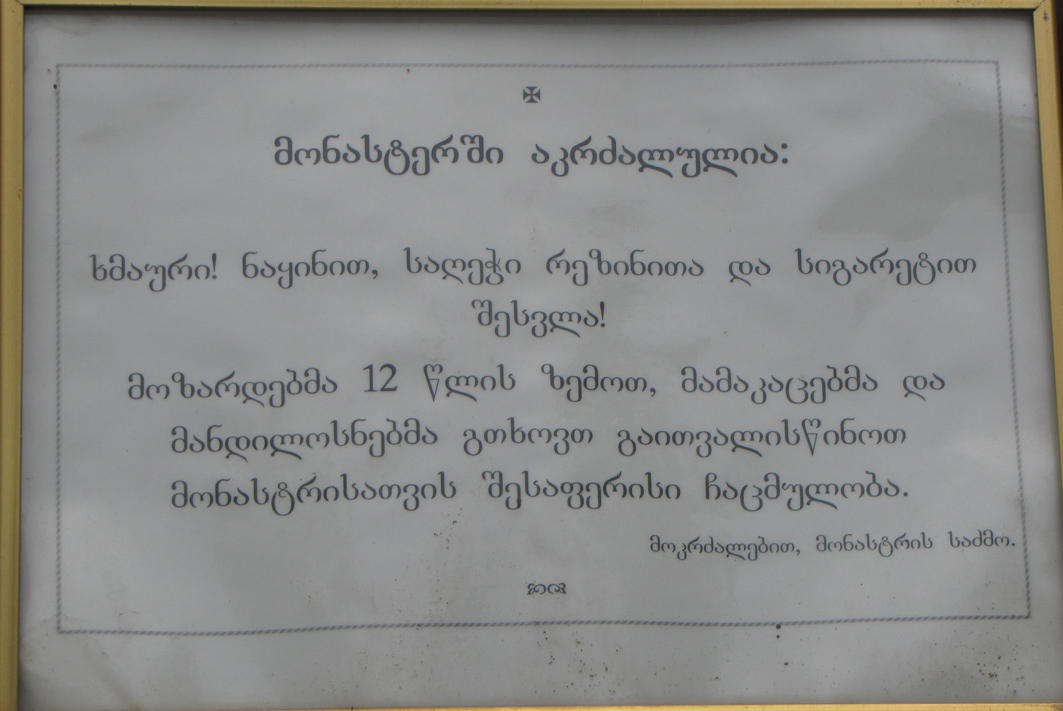 მონასტერში აკრძალულია:
ხმაური! ნაყინით, საღეჭი რეზინითა და სიგარეტით
შესვლა!
მოზარდებმა 12 წლის ზემოთ, მამაკაცებმა და
მანდილოსნებმა გთხოვთ გაითვალისწინოთ
მონასტრისათვის შესაფერისი ჩაცმულობა.
მოკრძალებით, მონასტრის საძმო.